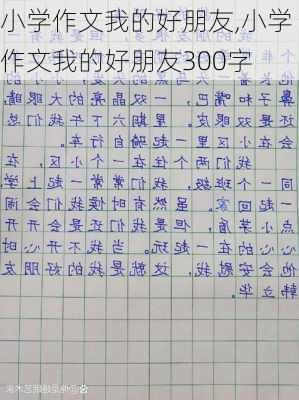 小学作文我的好朋友,小学
作文我的好朋友300字
鼻子和嘴巴,一双晶亮的大眼睛,
还是双眼皮。星期六下午我们总
会在小区里一起骑自行车。
我们两个住在一个小区,在
同一个班级,我们常常一起上学,
一起回家。虽然有时候我们会闹
点小矛盾,但是我们还是会开开
心心的在一起玩。当我不开心时
他会安慰我,这就是我的好朋友
韩立华。